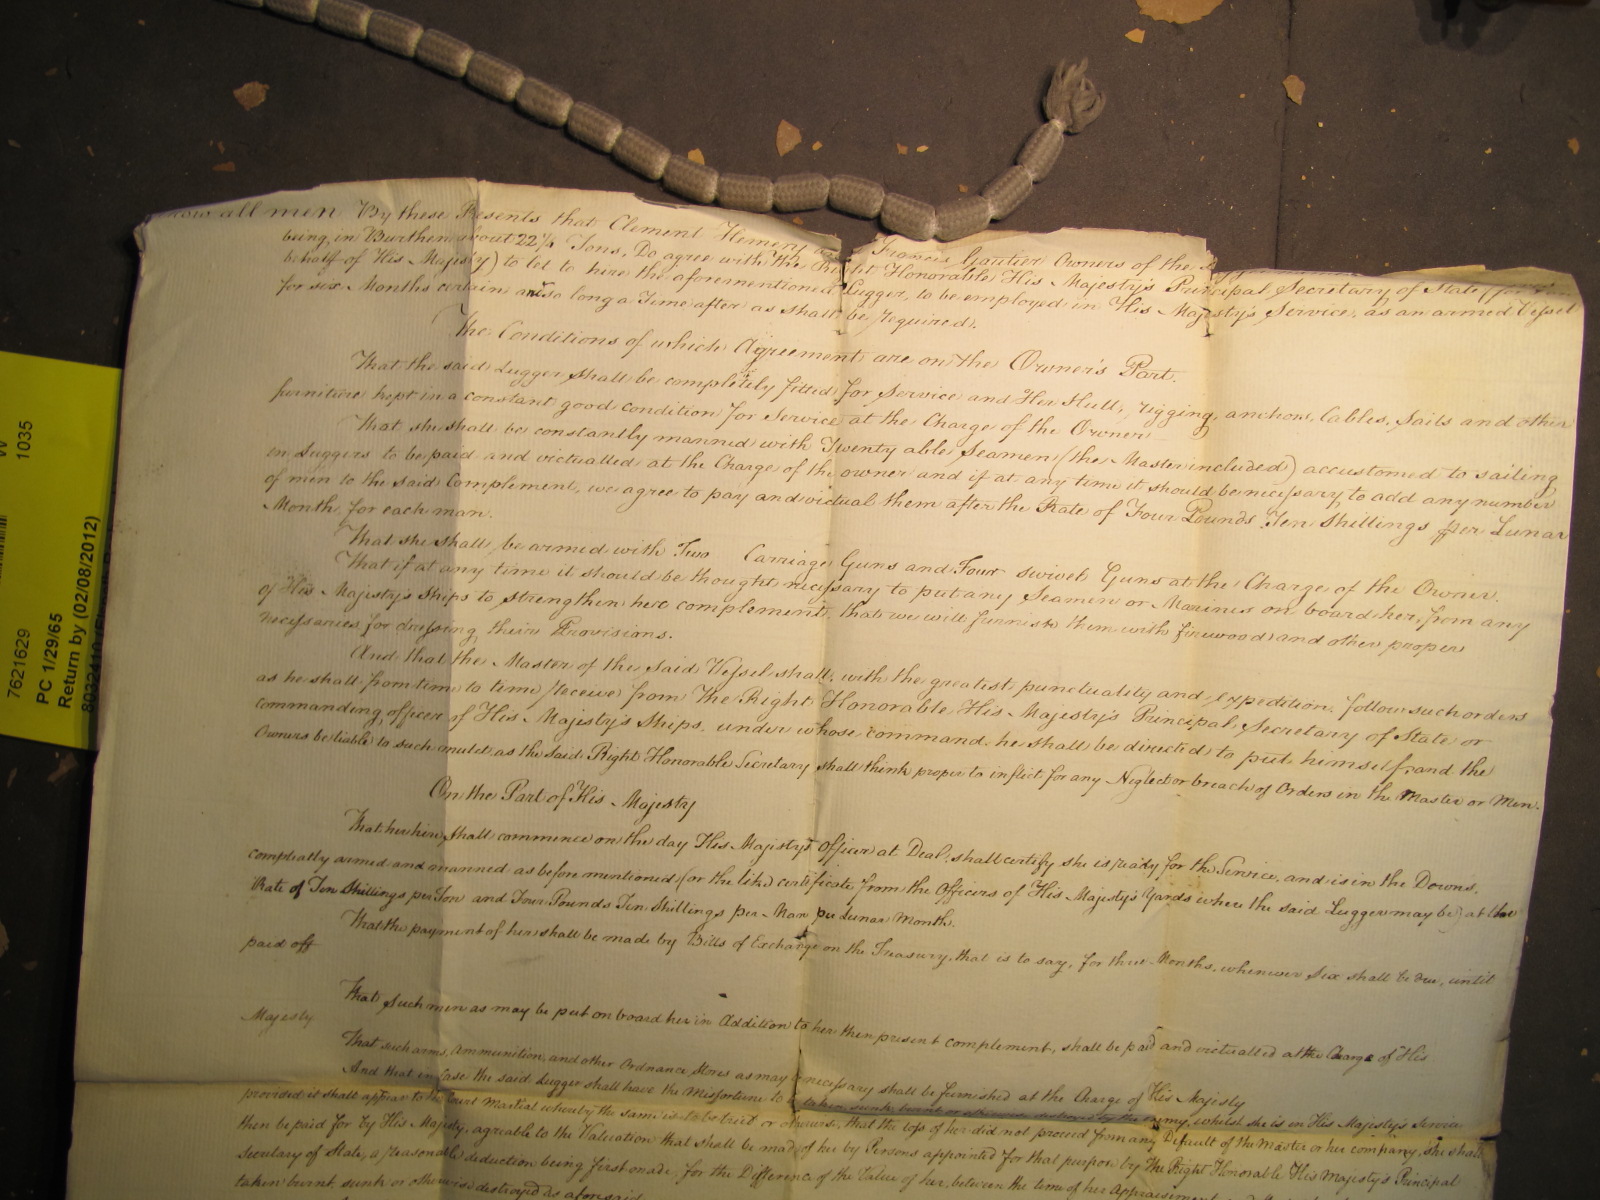 now all men By these Presents that Clement Hemery and Francis Gautier Owners of the
being in Burthen about 22 1/4 Tons, Do agree with the Right Honorable His Majesty's Principal Secretary of State (for
behalf of His Majesty) to let to hire the aforementioned Lugger, to be employed in His Majesty's Service, as an armed Vessel
for six Months certain and so long a Time after as shall be required.
The Conditions of which Agreement are on the Owner's Part.
That the said Lugger shall be completely fitted for Service and Her Hull, rigging, anchors, Cables, Sails and other
furniture kept in a constant good condition for Service at the Charge of the Owner
That she shall be constantly manned with Twenty able Seamen (the Master included) accustomed to sailing
in Luggers to be paid and victualled at the Charge of the owner and if at any time it should be necessary to add any number
of men to the said Complement, we agree to pay and victual them after the Rate of Four Pounds Ten Shillings per Lunar
Month for each man.
That she shall be armed with Two Carriage Guns and Four swivel Guns at the Charge of the Owner.
That if at any time it should be thought necessary to put any Seamen or Marines on board her, from any
of His Majesty's Ships to strengthen her complement, that we will furnish them with firewood and other proper
necessaries for dressing their Provisions.
And that the Master of the said Vessel shall, with the greatest punctuality and expedition, follow such orders
as he shall from time to time receive from The Right Honorable His Majesty's Principal Secretary of State or
commanding officer of His Majesty's Ships, under whose command he shall be directed to put himself, and the
Owners be liable to such mulct as the Said Right Honorable Secretary shall think proper to inflict for any Neglect or breach of Orders in the Master or Men.
On the Part of His Majesty
That her hire shall commence on the day His Majesty's Officer at Deal, shall certify she is ready for the Service, and is in the Downs,
compleatly armed and manned as before mentioned (or the like certificate from the Officers of His Majesty's Yards where the said Lugger may be) at the
Rate of Ten Shillings per Ton and Four Pounds Ten Shillings per Man per Lunar Month.
That the payment of her shall be made by Bills of Exchange on the Treasury, that is to say, for three Months, whenever Six shall be due, until
paid off
That such men as may be put on board her in Addition to her then present complement, shall be paid and victualled at the Charge of His
Majesty
That such arms, Ammunition, and other Ordnance Stores as may be necessary shall be furnished at the Charge of His Majesty
And that in Case the said Lugger shall have the Misfortune to be taken, sunk, burnt or otherwise destroyed by the enemy, whilst she is in His Majesty's Service
provided it shall appear to the Court Martial whereby the same is to be tried or otherwise, that the loss of her did not proceed from any Default of the Master or her company, she shall
then be paid for by His Majesty, agreable to the Valuation that shall be made of her by Persons appointed for that purpose by the Right Honorable His Majesty's Principal
Secretary of State, a reasonable deduction being first made, for the Difference of the Value of her, between the time of her Appraisement
taken burnt, sunk or otherwise destroyed as aforesaid
1035
7621629
PC 1/29/65
Return by (02/08/2012)